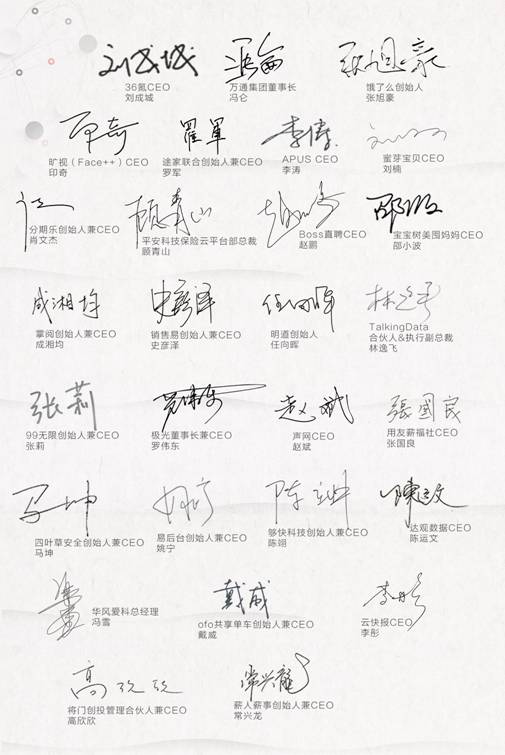 刘成城 冯仑 张旭豪
36氪CEO 万通集团董事长 饿了么创始人
刘成城 冯仑 张旭豪
印奇 羅軍 李涛
旷视（Face++）CEO 途家联合创始人兼CEO APUS CEO 蜜芽宝贝CEO
印奇 罗军 李涛 刘楠
顾青山
分期乐创始人兼CEO 平安科技保险云平台部总裁 Boss直聘CEO 宝宝树美囤妈妈CEO
肖文杰 顾青山 赵鹏 邵小波
成湘均 史彦泽 任向晖 林逸飞
掌阅创始人兼CEO 销售易创始人兼CEO 明道创始人 TalkingData
成湘均 史彦泽 任向晖 合伙人&执行副总裁
林逸飞
张莉 罗伟东 赵斌
99无限创始人兼CEO 极光董事长兼CEO 声网CEO 用友薪福社CEO
张莉 罗伟东 赵斌 张国良
马坤 姚宁 陈翊 陳运文
四叶草安全创始人兼CEO 易后台创始人兼CEO 够快科技创始人兼CEO 达观数据CEO
马坤 姚宁 陈翊 陈运文
戴威 李彤
华风爱科总经理 ofo共享单车创始人兼CEO 云快报CEO
冯雪 戴威 李彤
高欣欣 常兴龍
将门创投管理合伙人兼CEO 薪人薪事创始人兼CEO
高欣欣 常兴龙